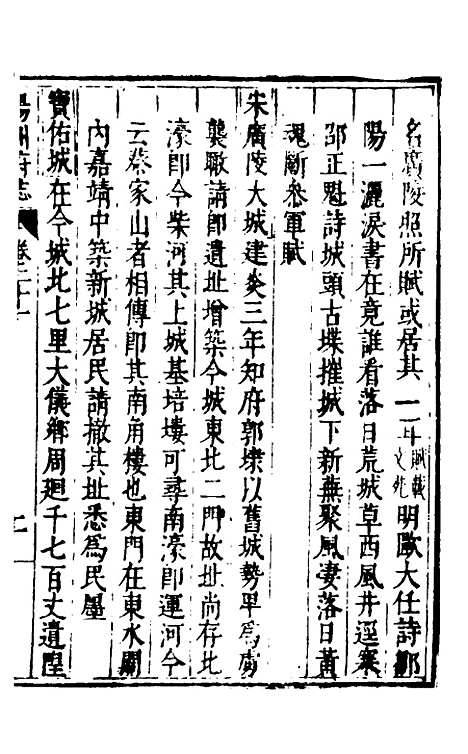 名廣陵照所賦或居其一二耳賦載文苑明歐大任詩鄒
陽一灑淚書在竟誰看落日荒城草西風井逕寒
邵正魁詩城頭古堞摧城下新蕪聚風凄落日黃
魂斷參軍賦
宋廣陵大城建炎三年知府郭㮣以舊城勢卑為廣
襲畷請卽遺址增築今城東北二門故址尚存北
濠卽今柴河其上城基培塿可尋南濠卽運河今
云蔡家山者相傳卽其南角樓也東門在東水關
內嘉靖中築新城居民請撤其址悉為民廛
寶佑城在今城北七里大儀鄉周廻千七百丈遺隍
揚州府志 卷二十一